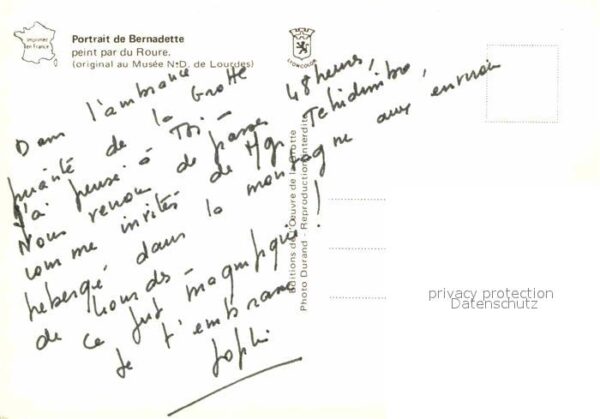 Imprimé
en France
Portrait de Bernadette
peint par du Roure.
(original au Musée N.-D. de Lourdes)
LYONCOLOR
Dans l'ambiance
priante de la Grotte
j'ai pensé à Toi –
Nous venons de passer 48 heures,
comme invités de Mgr
hébergé dans la montagne aux environ
de Lourdes –
Ce fut magnifique !
Je t'embrasse
Sophie
Editions de l'Œuvre de la Grotte
Photo Durand - Reproduction interdite
privacy protection
Datenschutz